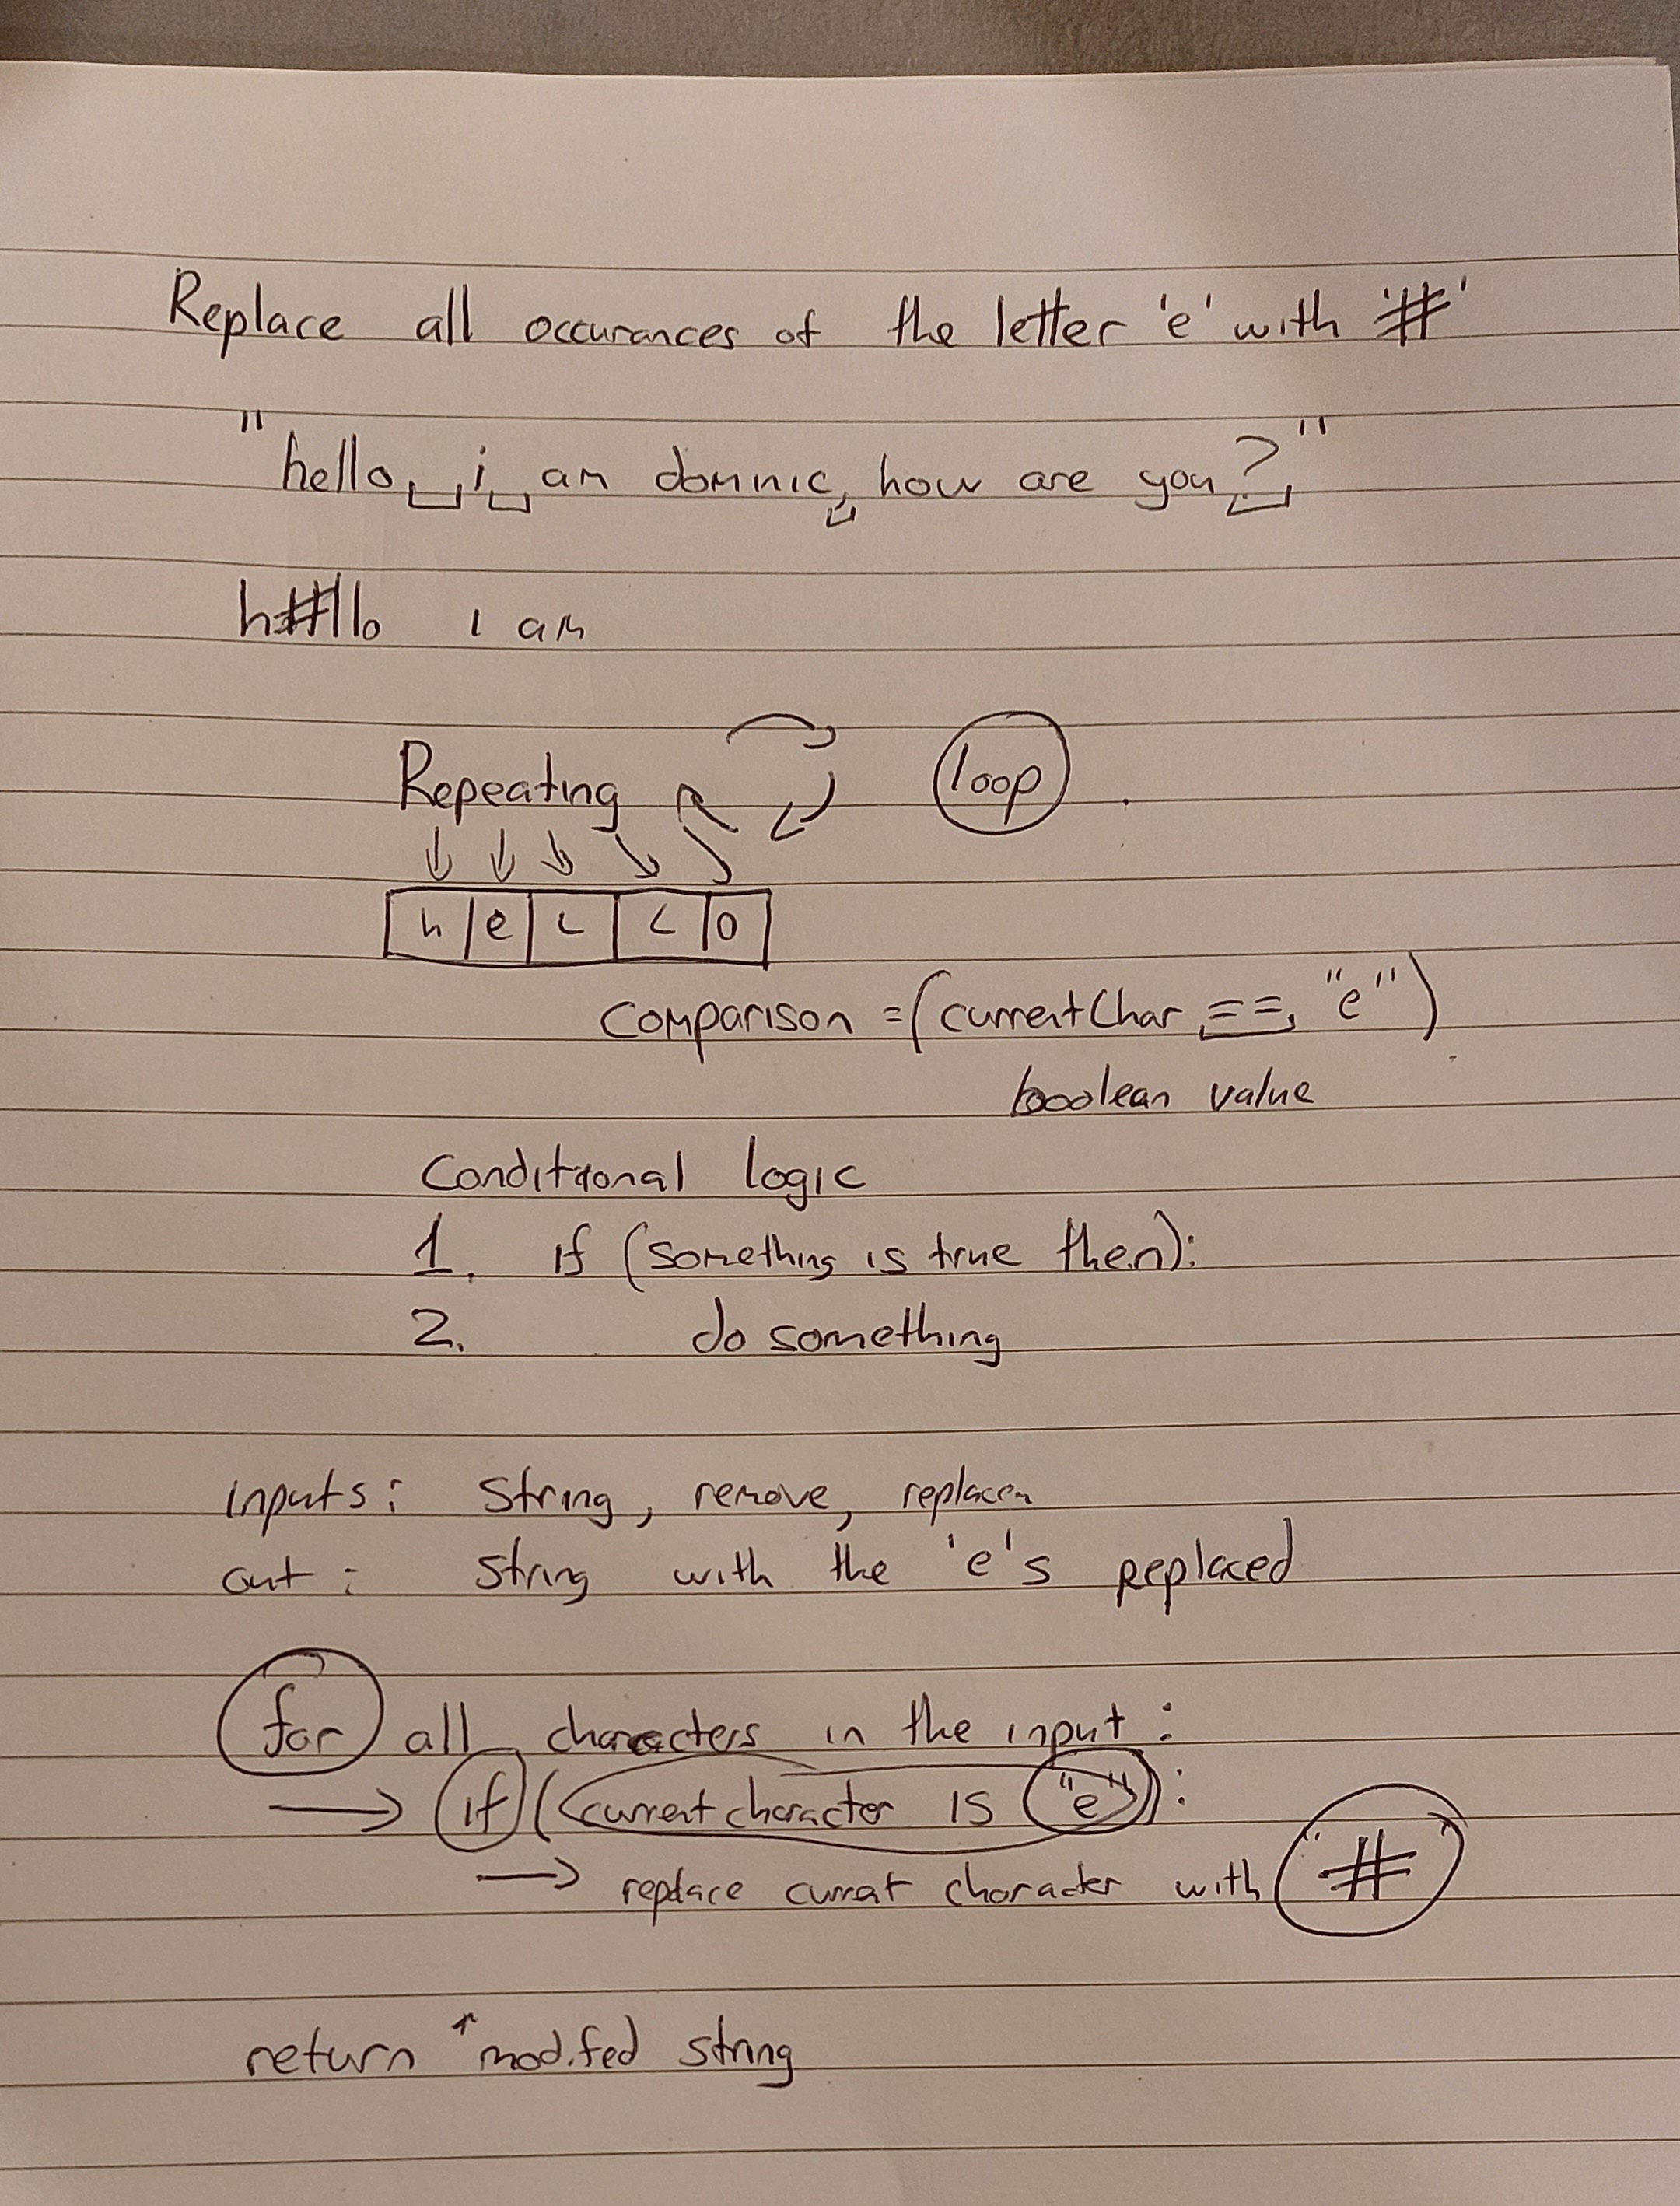 Replace all occurances of the letter 'e' with '#'
"hello i am domnic, how are you?"
h#llo i am
Repeating loop
h e l l o
comparison = (currentChar == "e")
boolean value
Conditional logic
1. if (something is true then):
2. do something
inputs: string, remove, replacen
out: string with the 'e's replaced
for all characters in the input:
→ if (current character is "e"):
→ replace currat character with "#"
return modified string